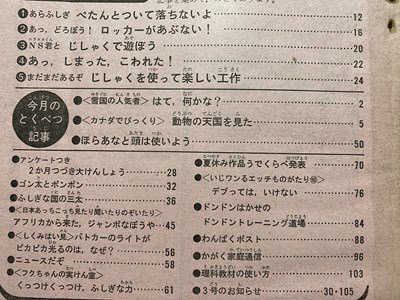 ❶あらふしぎ ぺたんとついて落ちないよ 12
❷あっ、どろぼう! ロッカーがあぶない! 16
❸NS君と じしゃくで遊ぼう 20
❹あっ、しまった、こわれた! 22
❺まだまだあるぞ じしゃくを使って楽しい工作 24
こんげつ
今月の
とくべつ
きじ
記事
●<雪国の人気者>はて、何かな? 2
●<カナダでびっくり>動物の天国を見た 5
●ほらあなと頭は使いよう 50
●アンケートつき
2か月つづき大けんしょう 28
●ゴン太とポンポン 32
●ふしぎな国の三太 36
●<日本あっちこっち見たり聞いたりのぞいたり>
アフリカから来た、ジャンボなぼうや 45
●<しくみはい見>パトカーのライトが
ピカピカ光るのは、なぜ? 56
●ニュースだぞ 58
●<フクちゃんの実けん室>
くっつけくっつけ、ふしぎな力 61
●夏休み作品コンクール発表 70
●<いじワンるエッチものがたり>
デブっては、いけない 76
●ドンドンはかせの
ドンドントレーニング道場 84
●わんぱくポスト 88
●かがく家庭通信 96
●理科教材の使い方 103
●3号のお知らせ 30・105